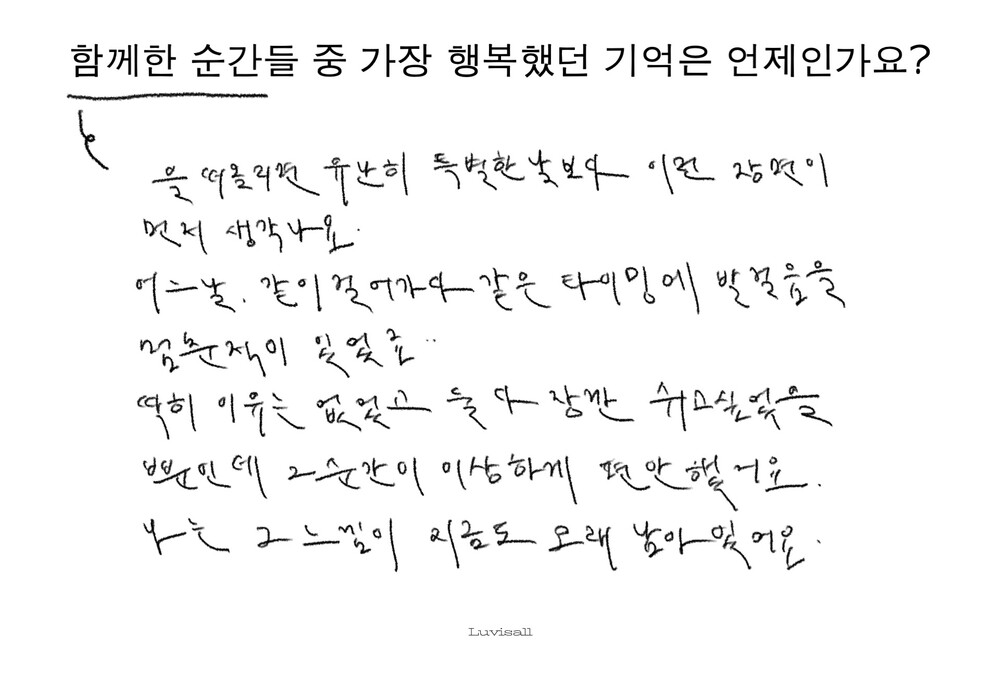 함께한 순간들 중 가장 행복했던 기억은 언제인가요?
을 떠올리면 유난히 특별한 날보다 이런 장면이
먼저 생각나요.
어느날, 같이 걸어가다 같은 타이밍에 발걸음을
멈춘적이 있었죠..
딱히 이유는 없었고 둘 다 잠깐 쉬고싶었을
뿐인데 그 순간이 이상하게 편안했거든요.
나는 그 느낌이 지금도 오래 남아있어요.
Luvisall